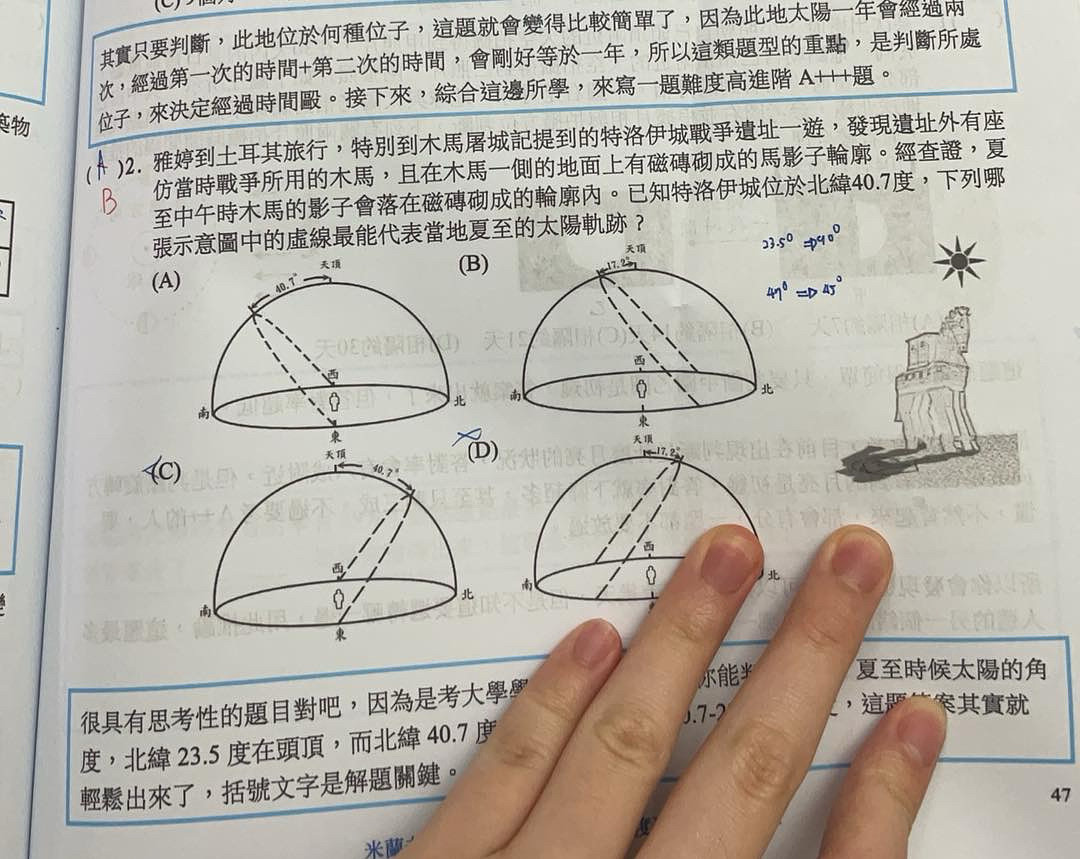 其實只要判斷，此地位於何種位子，這題就會變得比較簡單了，因為此地太陽一年會經過兩
次，經過第一次的時間+第二次的時間，會剛好等於一年，所以這類題型的重點，是判斷所處
位子，來決定經過時間毆。接下來，綜合這邊所學，來寫一題難度高進階 A+++題。
築物
(A)2. 雅婷到土耳其旅行，特別到木馬屠城記提到的特洛伊城戰爭遺址一遊，發現遺址外有座
B
仿當時戰爭所用的木馬，且在木馬一側的地面上有磁磚砌成的馬影子輪廓。經查證，夏
至中午時木馬的影子會落在磁磚砌成的輪廓內。已知特洛伊城位於北緯40.7度，下列哪
張示意圖中的虛線最能代表當地夏至的太陽軌跡？
23.5° ⇒90°
47° ⇒ 45°
(A)
天頂
40.7°
西
南
北
東
(B)
天頂
17.2°
西
南
北
東
(C)
天頂
40.7°
西
南
北
東
(D)
天頂
17.2°
西
南
北
很具有思考性的題目對吧，因為是考大學
你能
夏至時候太陽的角
度，北緯 23.5 度在頭頂，而北緯 40.7 度
，這題答案其實就
輕鬆出來了，括號文字是解題關鍵。
47
米蘭